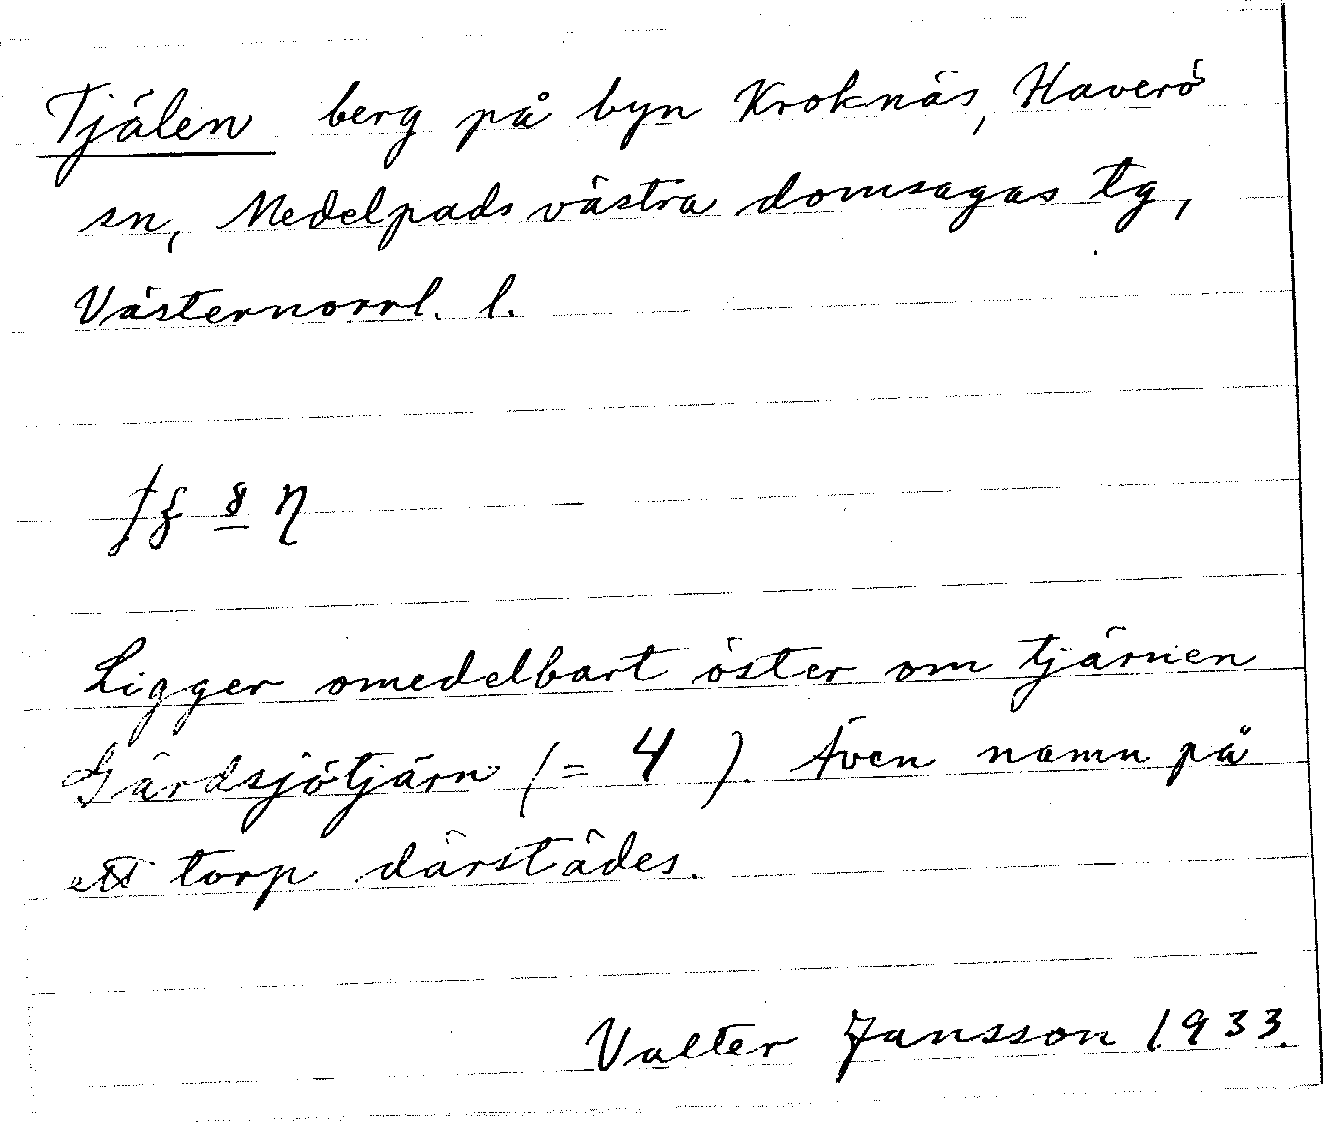 Tjälen berg på byn Kroknäs, Haverö
sn, Medelpads västra domsagas tg,
Västernorrl. l.
Ligger omedelbart öster om tjärnen
Gärdsjötjärn (= 4 ). Även namn på
ett torp därstädes.
Valter Jansson 1933.